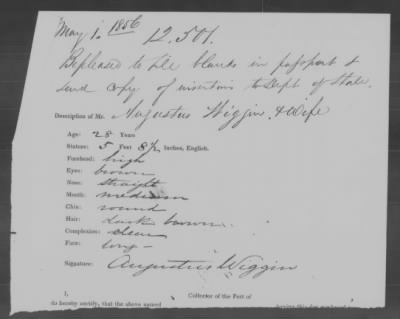 May 1. 1856
12.501.
Be pleased to fill blanks in passport &
send copy of insertions to Dept of State.
Description of Mr. Augustus Wiggin & Wife
Age: 28 Years
Stature: 5 Feet 8 1/2 Inches, English.
Forehead: high
Eyes: brown
Nose: straight
Mouth: medium
Chin: round
Hair: dark brown
Complexion: clear
Face: long —
Signature: Augustus Wiggin
I, Collector of the Port of
do hereby certify, that the above named